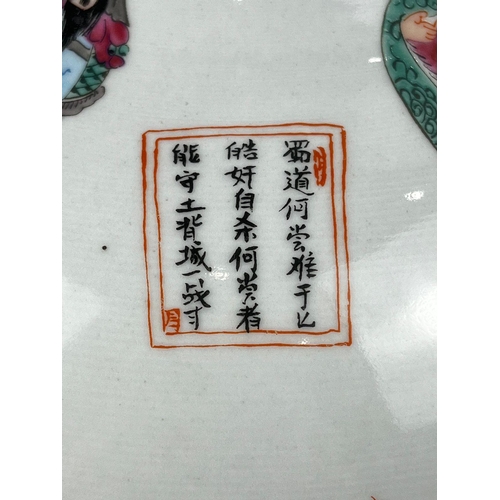 蜀道何尝难于上
皓奸自杀何尝者
能守土背城一战寸